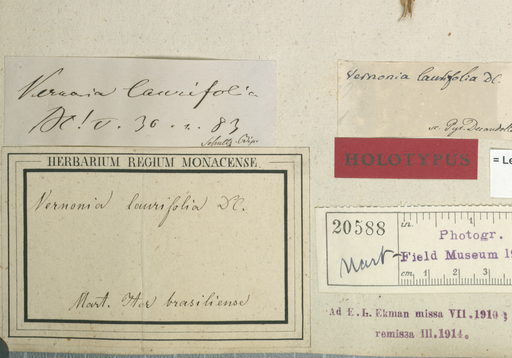 Vernonia laurifolia
DC! V. 30. n. 83
Schultz Bip.
HERBARIUM REGIUM MONACENSE.
Vernonia laurifolia DC.
Mart. Iter brasiliense
Vernonia laurifolia DC.
HOLOTYPUS
= Le
20588
Mart
in. 1
Photogr.
Field Museum 19
cm. 1 2 3
Ad E. L. Ekman missa VII. 1910;
remissa III. 1914.